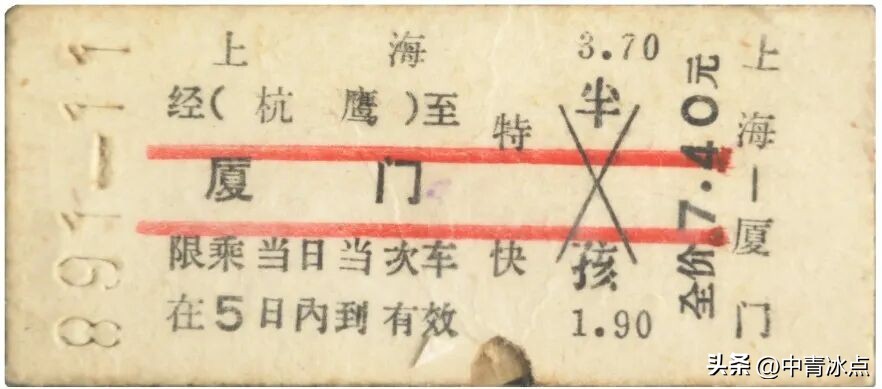 891-11
上海
经(杭鹰)至
厦门
限乘当日当次车
在5日内到有效
特快
3.70
半
孩
1.90
全价7.40元
上海—厦门
头条 @中青冰点